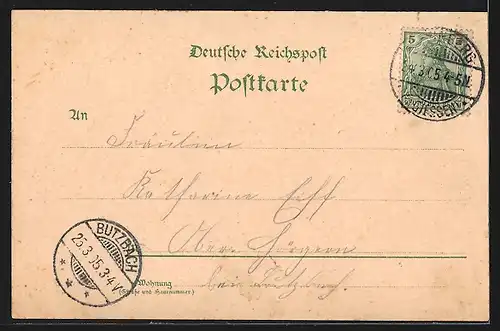 Deutsche Reichspost
Postkarte
5
BERG
24.3.05.4-5N.
(HESSEN)
An
Fräulein
Katharina
Ober-Hörgern
bei Butzbach.
BUTZBACH
25.3.05.3-4V.
Wohnung
(Straße und Hausnummer)